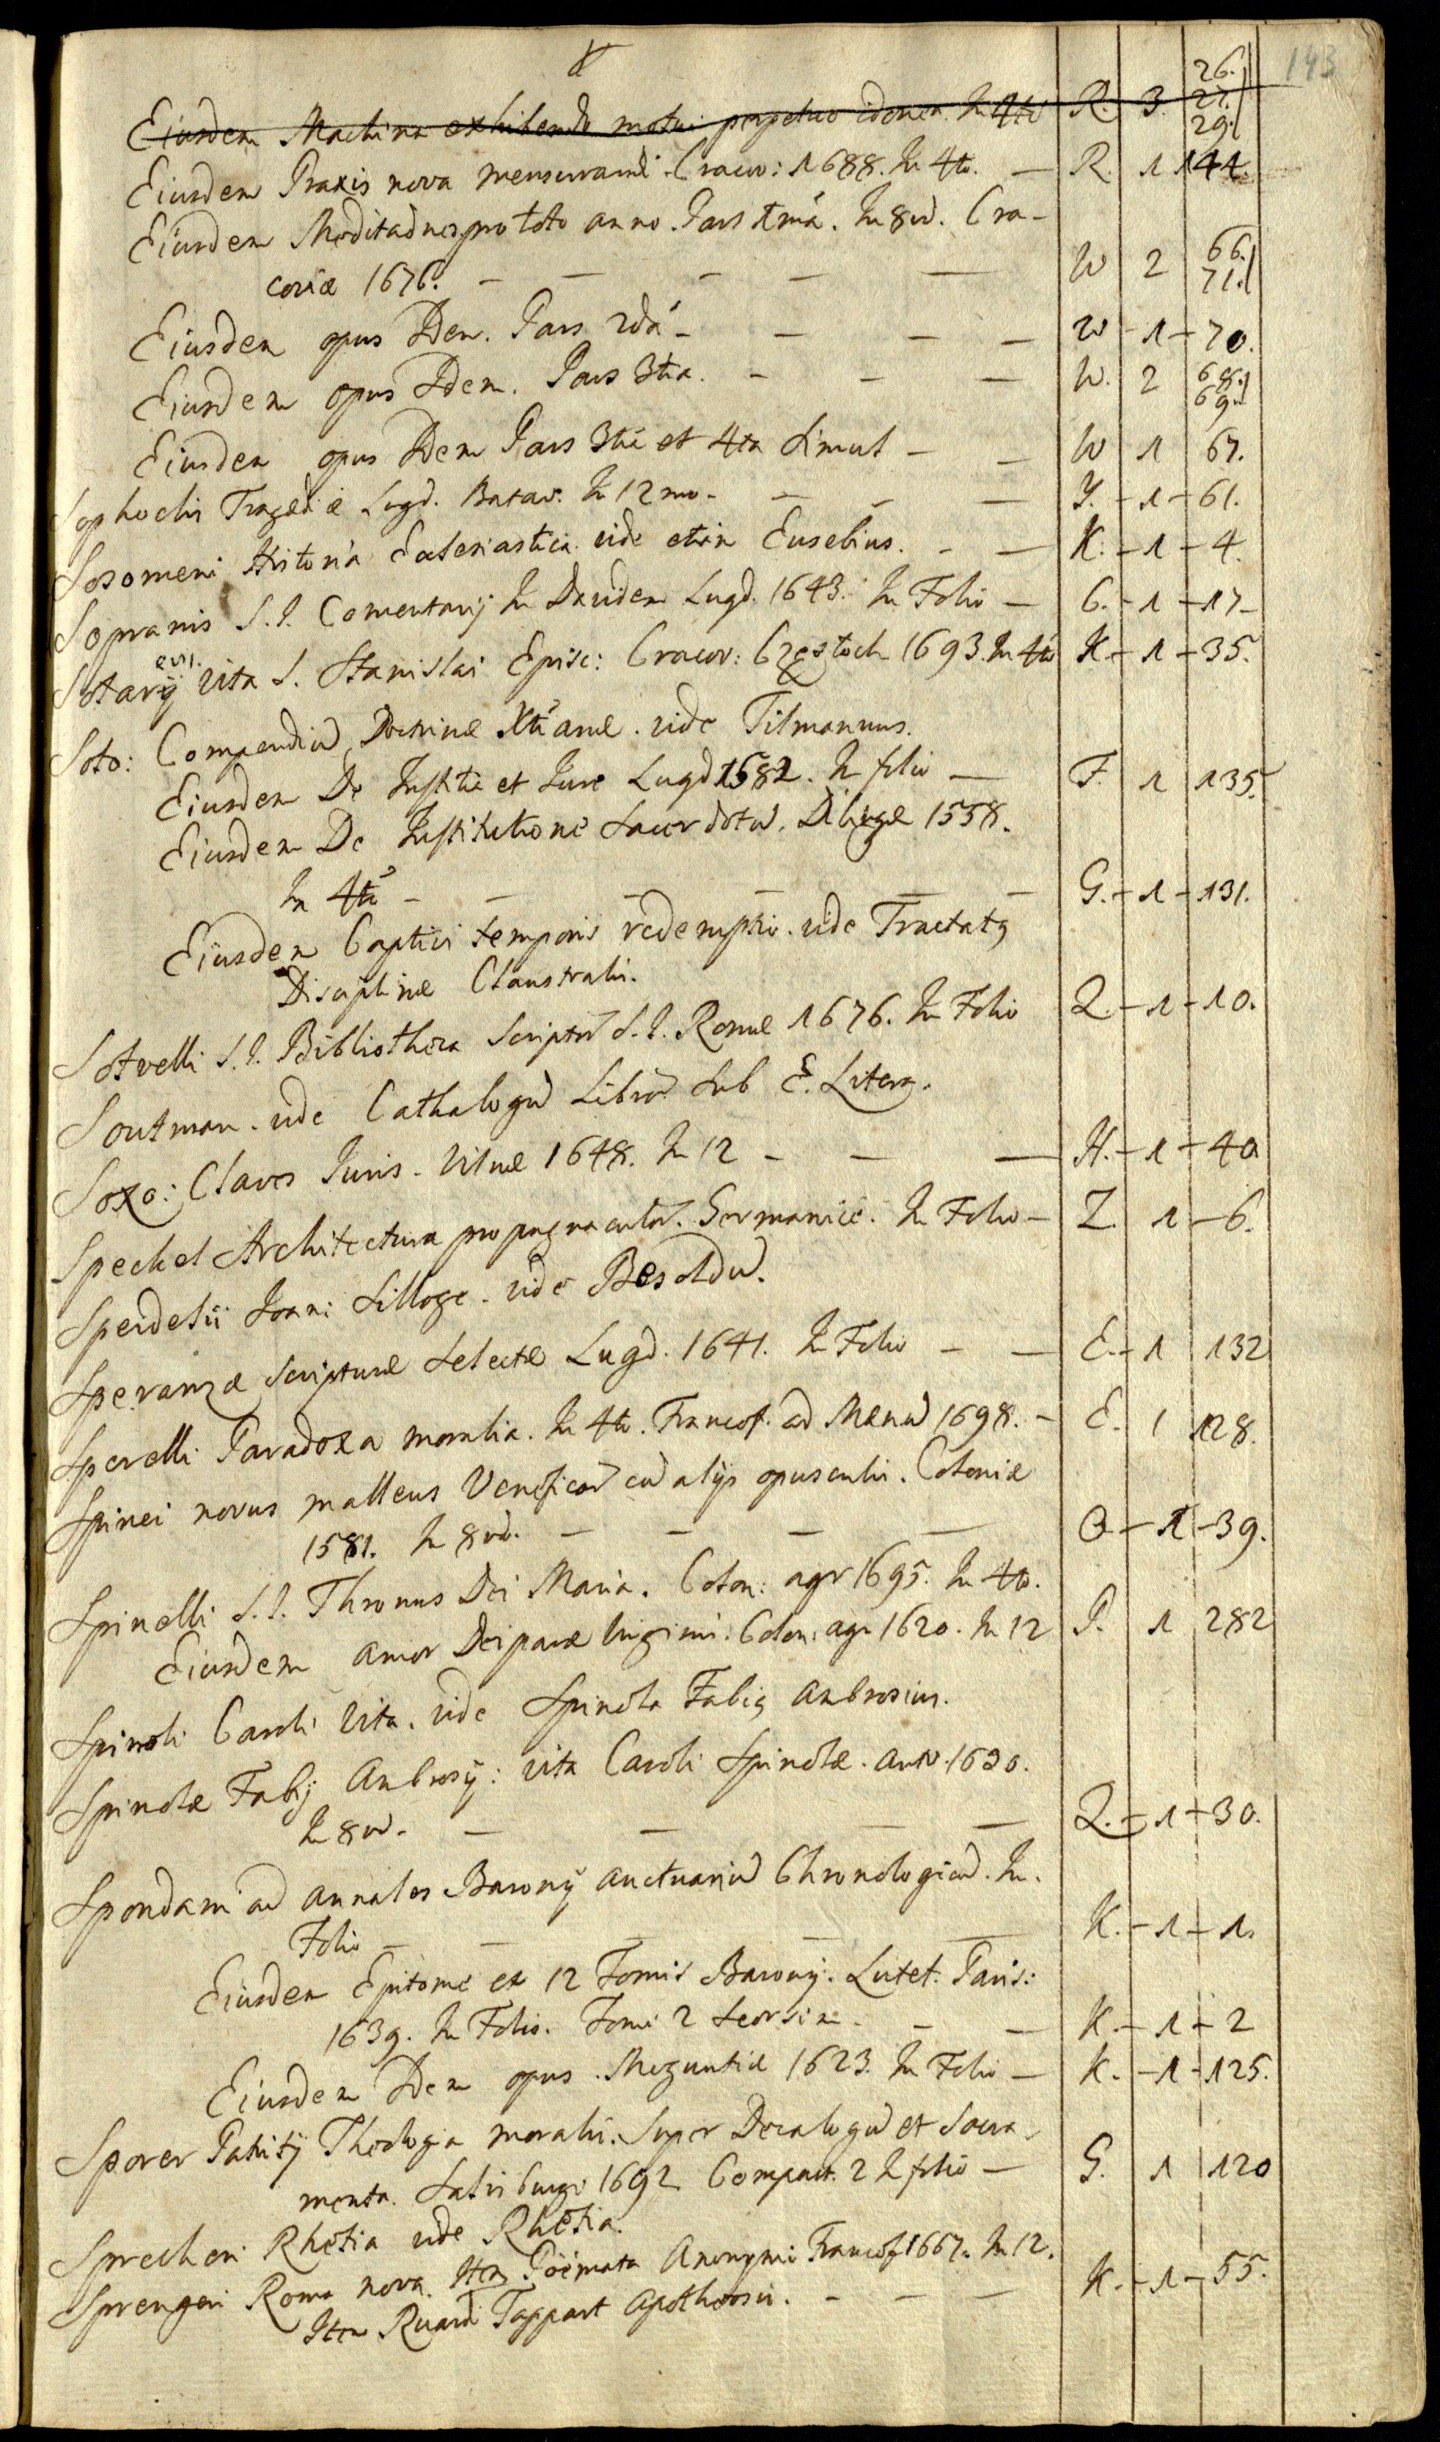 143
Eiusdem Machina exhibendo motui perpetuo idonea. In 4to R. 3. 26. 27. 29.
Eiusdem Praxis nova mensurandi. Cracov: 1688. In 4to. — R. 1 144.
Eiusdem Meditadnes pro toto anno. Pars 1ma. In 8vo. Cra-
coviæ 1676. — — — — — W 2 66. 71.
Eiusdem opus Idem. Pars 2da — — — — W - 1 - 70.
Eiusdem opus Idem. Pars 3tia. — — — W. 2 68. 69.
Eiusdem opus Idem Pars 3tia et 4ta simul — — W 1 67.
Sophoclis Tragediæ Lugd. Batav. In 12mo — — — — Y. - 1 - 61.
Sosomeni Historia Ecclesiastica. vide etiam Eusebius. — — K. - 1 - 4.
Sopranis S. I. Comentarij In Davidem Lugd. 1643. In Folio — C. - 1 - 17 -
Sotarevij Vita S. Stanislai Episc: Cracov: Częstoch 1693. In 4to K. - 1 - 35.
Soto: Compendiu Doctrinæ Xtianæ. vide Tilmannus.
Eiusdem De Iustitia et Iure Lugd 1582. In folio — F. 1 135.
Eiusdem De Institutione Sacerdotu. Dilingæ 1558.
In 4to — — — — — — G. - 1 - 131.
Eiusdem Captivi temporis redemptio. vide Tractatus
Disciplinæ Claustralis.
Sotvelli S. I. Bibliotheca Scriptor S. I. Romæ 1676. In Folio Q - 1 - 10.
Soutman. vide Cathalogu Libror sub C. Litera.
Soxo: Claves Iuris. Vilnæ 1648. In 12 — — — H. - 1 - 40
Speckel Architectura propugnaculor. Germanicè. In Folio — Z. 1 - 6.
Speidelii Ioani Silloge. vide Besoldu.
Speranzæ Scripturæ Selectæ Lugd. 1641. In Folio — — E. - 1 132
Sperelli Paradoxa moralia. In 4to. Francof. ad Mænu 1698. — E. 1 128.
Spinei novus malleus Veneficar cu alijs opusculis. Coloniæ
1581. In 8vo. — — — — O - 1 - 39.
Spinelli S. I. Thronus Dei Maria. Colon: agr 1695. In 4to.
Eiusdem amor Deiparæ Virginis. Colon: agr 1620. In 12 P. 1 282
Spinoli Caroli Vita. vide Spinola Fabius Ambrosius.
Spinolæ Fabij Ambrosij: vita Caroli Spinolæ. Antv. 1630.
In 8vo. — — — — Q. - 1 - 30.
Spondani ad annales Baronij auctuariu Chronologicu. In.
Folio — — — — — K. - 1 - 1.
Eiusdem Epitome ex 12 Tomis Baronij. Lutet. Paris:
1639. In Folio. Tomi 2 seorsim. — — K. - 1 - 2
Eiusdem Idem opus. Moguntiæ 1623. In Folio — K. - 1 - 125.
Sporer Patritij Theologia moralis. Super Decalogu et Sacra-
menta. Salisburgi 1692 Compact. 2 In folio — G. 1 120
Sprecheri Rhetia vide Rhetia.
Sprengeri Roma nova. Item Poëmata Anonymi Francof 1667. In 12.
Item Ruardi Tappart apotheosis. — — — K. - 1 - 55.